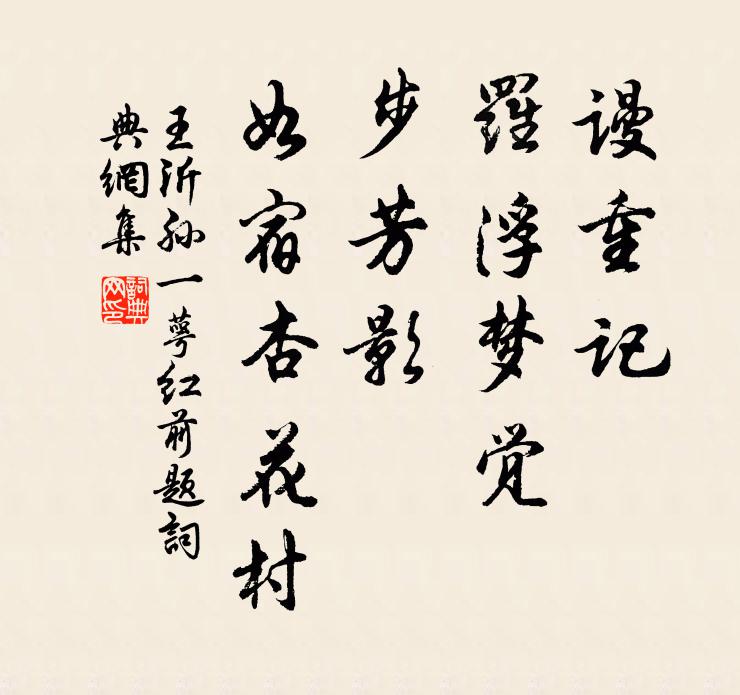 谩重记
羅浮梦觉
步芳影
如宿杏花村
王沂孙一萼红前题詞
典網集
詞典网印